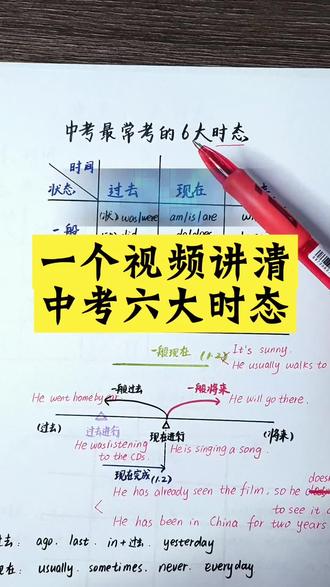 中考最常考的6大时态
时间
状态
过去
现在
一般
(状) was/were
am/is/are
did
do/does
一个视频讲清
中考六大时态
一般现在 (1.2)
It's sunny.
He usually walks to
一般过去
一般将来
He went home by
He will go there.
(过去)
过去进行
现在进行
(将来)
He was listening
to the CDs.
He is singing a song.
现在完成 (1.2)
He has already seen the film, so he
to see it
He has been in China for two years
过去: ago. last. in+过去. yesterday
现在: usually. sometimes. never. everyday